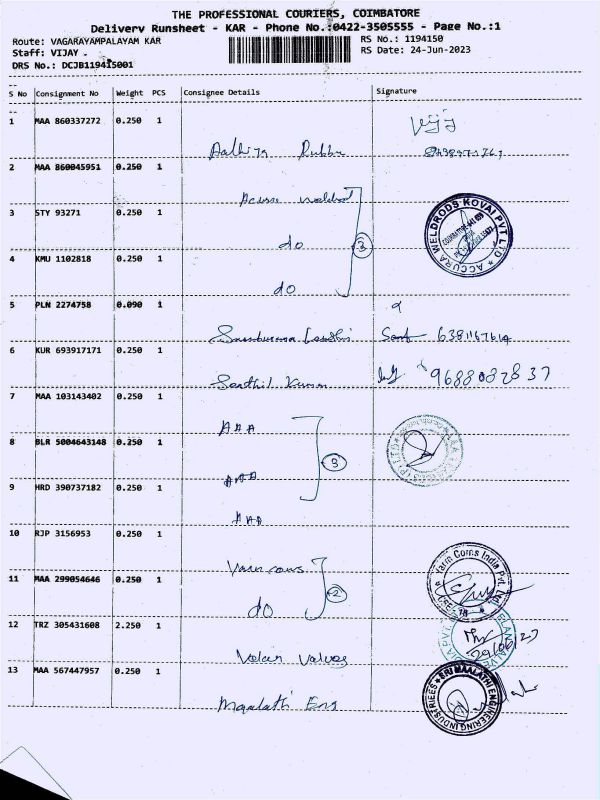 THE PROFESSIONAL COURIERS, COIMBATORE
Delivery Runsheet - KAR - Phone No.:0422-3505555 - Page No.:1
Route: VAGARAYAMPALAYAM KAR
RS No.: 1194150
Staff: VIJAY .
RS Date: 24-Jun-2023
DRS No.: DCJB119415001
S No Consignment No Weight PCS Consignee Details Signature
1 MAA 860337272 0.250 1
2 MAA 860845951 0.250 1
3 STY 93271 0.250 1
do
4 KMU 1102818 0.250 1
do
ACCURA WELDRODS KOVAI PVT LTD
5 PLN 2274758 0.090 1
6 KUR 693917171 0.250 1
Senthil Kumar 9688082837
7 MAA 103143402 0.250 1
AAA
8 BLR 5004643148 0.250 1
3
AAA
9 HRD 390737182 0.250 1
AAA
10 RJP 3156953 0.250 1
11 MAA 299054646 0.250 1
2
do
Yarn Corns India Pvt. Ltd.
12 TRZ 305431608 2.250 1
Velan Valves
13 MAA 567447957 0.250 1
Maalathi Eng
SRI MAALATHI ENGINEERING INDUSTRIES